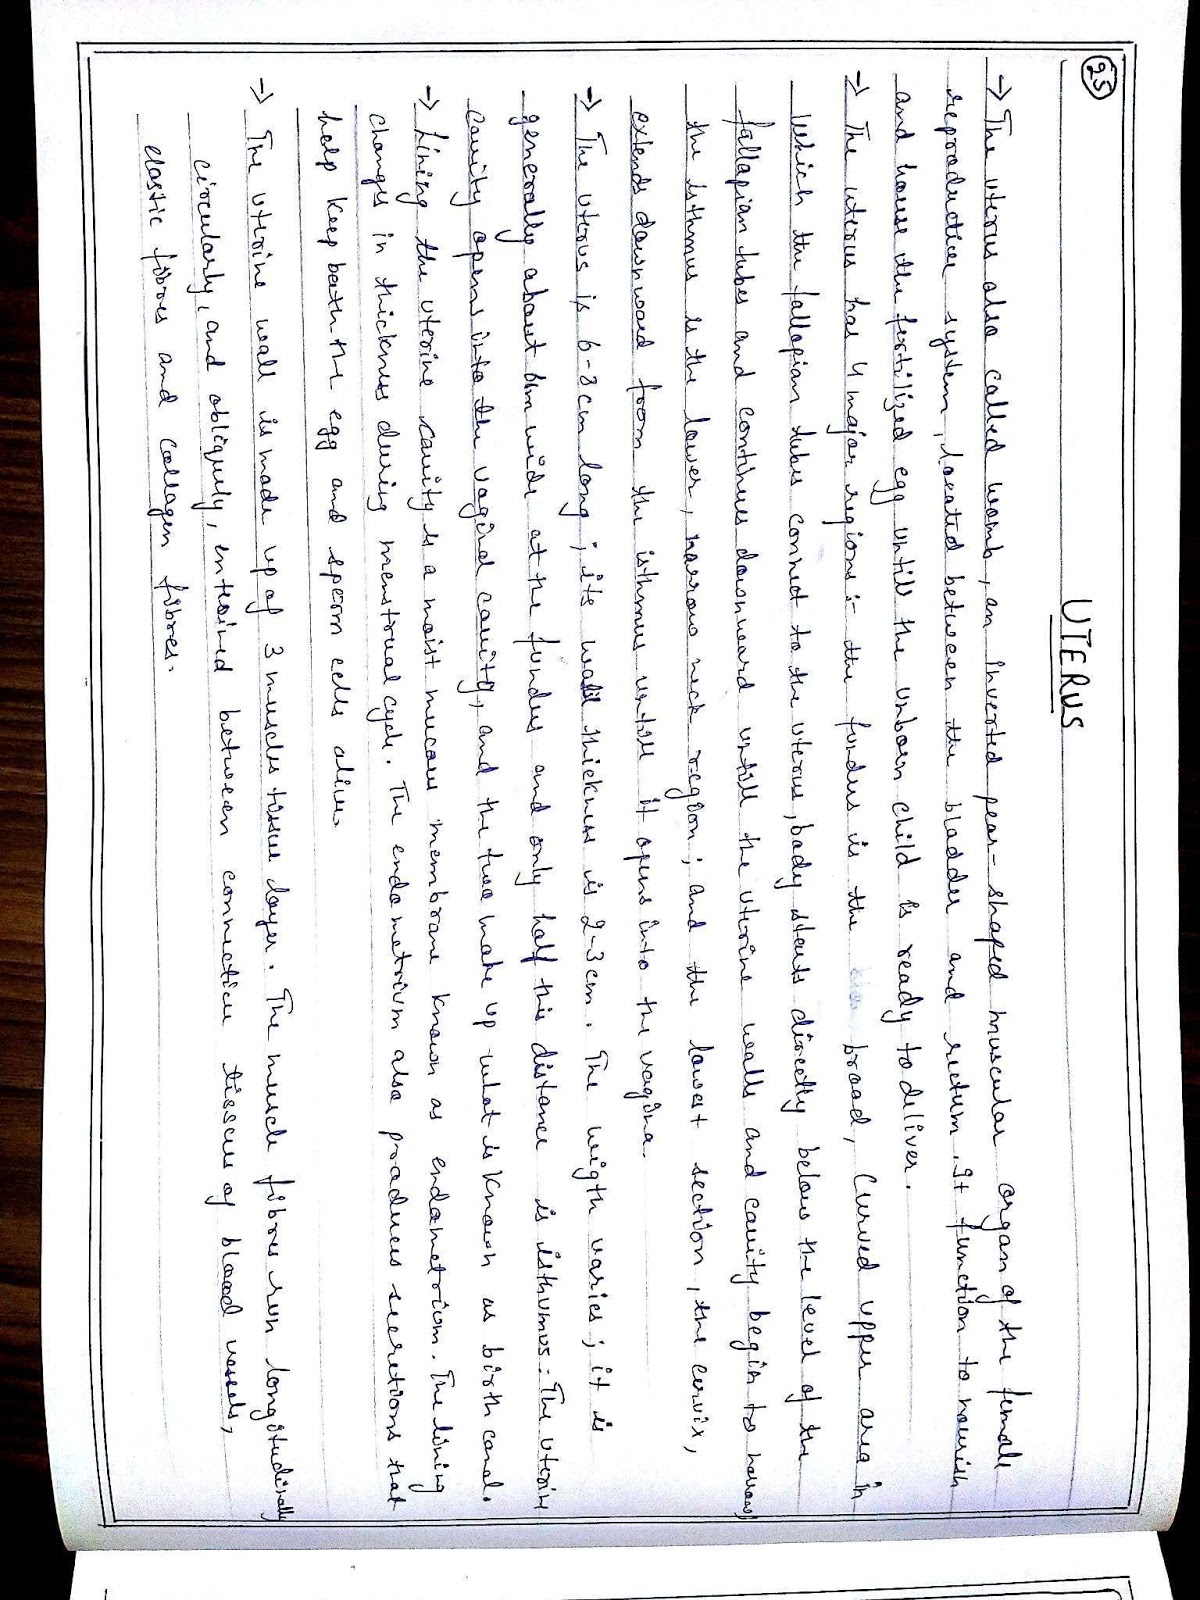 25
UTERUS
→ The uterus also called womb, an inverted pear-shaped muscular organ of the female
reproductive system, located between the bladder and rectum. It function to nourish
and house the fertilized egg untill the unborn child is ready to deliver.
→ The uterus has 4 major regions :- the fundus is the broad, curved upper area in
which the fallopian tubes connect to the uterus, body starts directly below the level of the
fallopian tubes and continues downward untill the uterine walls and cavity begin to narrow;
the isthmus is the lower, narrow neck region; and the lowest section, the cervix,
extends downward from the isthmus untill it opens into the vagina.
→ The uterus is 6-8 cm long; its wall thickness is 2-3 cm. The weigth varies; it is
generally about 6cm wide at the fundus and only half this distance is isthumus. The uterine
cavity opens into the vaginal cavity, and the two make up what is known as birth canal.
→ Lining the uterine cavity is a moist mucous membrane known as endometrium. The lining
changes in thickness during menstrual cycle. The endometrium also produces secretions that
help keep both the egg and sperm cells alive.
→ The uterine wall is made up of 3 muscles tissue layer. The muscle fibres run longitudinally
circularly, and obliquely, entwined between connective tissue of blood vessels,
elastic fibres and collagen fibres.